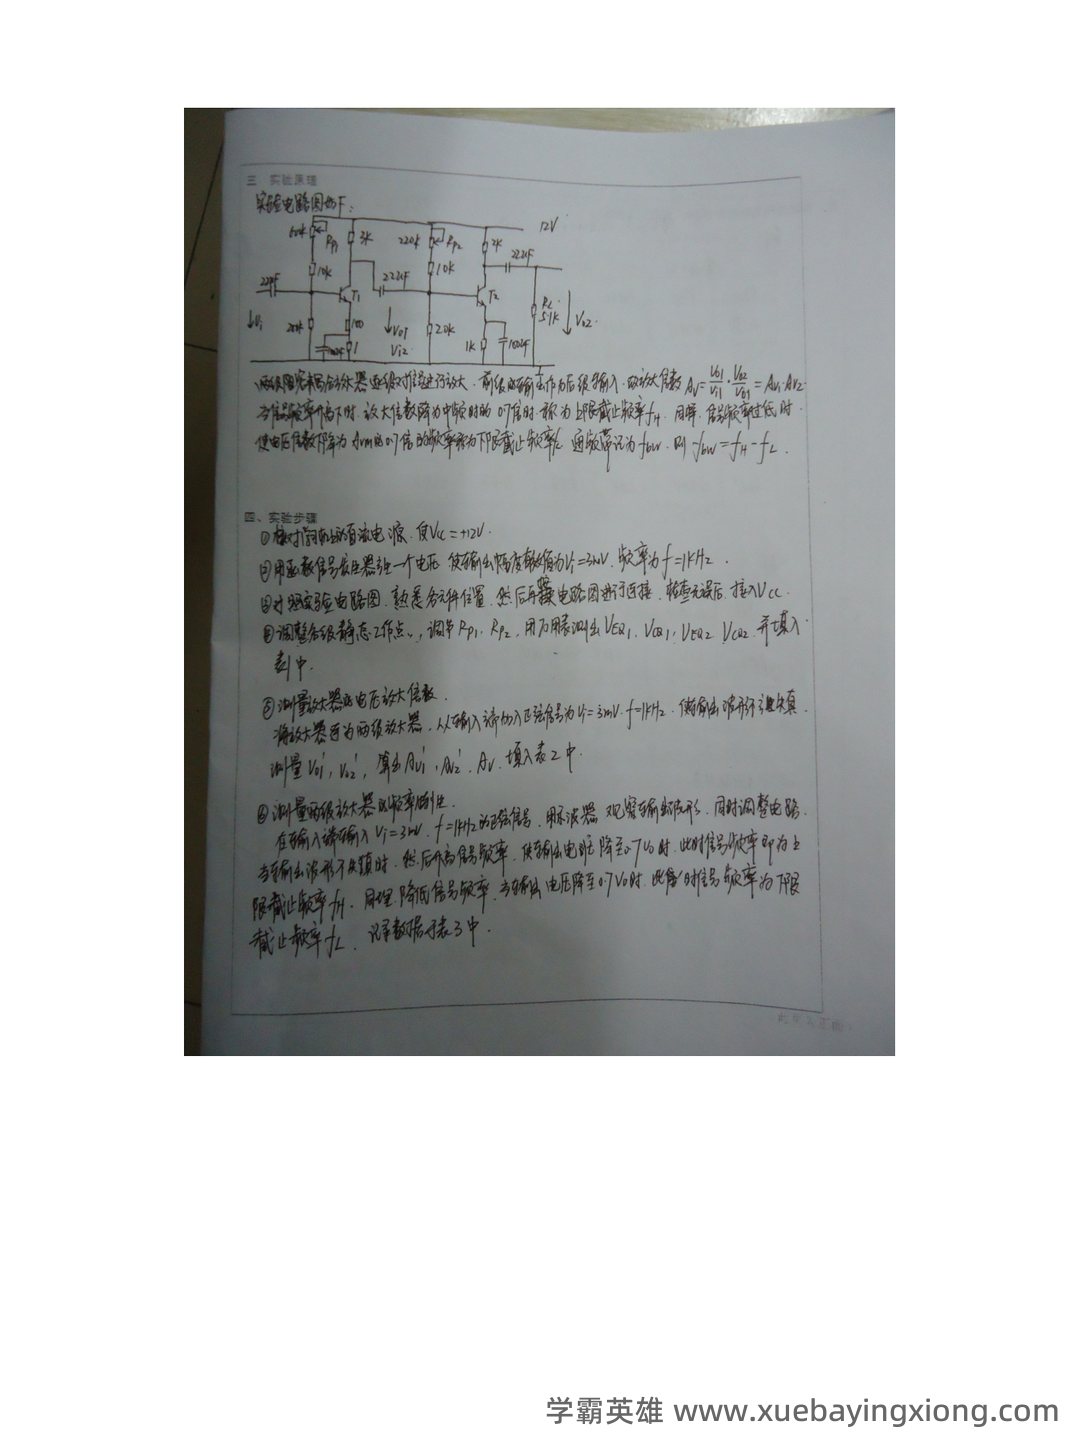 三、实验原理
实验电路图如下:
12V
Rp1 3K 220K Rp2 2K
22uF
10K 22uF 10K
22uF
T1 T2
RL 5.1K
Vi 20K 100 Vo1 Vi2 20K 1K 100uF Vo2
两级阻容耦合放大器逐级对信号进行放大,前级的输出作为后级输入,故放大倍数Av=Vo1/Vi1·Vo2/Vo1=Av1·Av2
当信号频率升高下时,放大倍数降为中频时的0.7倍时称为上限截止频率fH,同样,信号频率过低时,
使电压倍数下降为Avm的0.7倍的频率称为下限截止频率fL 通频带记为fbw,则 fbw=fH-fL.
四、实验步骤
①核对 的直流电源,使Vcc=+12V.
②用函数信号发生器产生一个电压 使输出幅度 值为Vi=3mV,频率为f=1KHz.
③对照实验电路图,熟悉各元件位置,然后再 电路图进行连接,检查无误后,接入Vcc.
④调整各级静态工作点,调节Rp1、Rp2,用万用表测出VEQ1,VCQ1,VEQ2 VCQ2 并填入
表1中.
⑤测量放大器的电压放大倍数.
将放大器 为两级放大器,从输入端加入正弦信号为Vi=3mV f=1KHz,使输出波形不 失真
测量Vo1',Vo2',算出Av1',Av2',Av,填入表2中.
⑥测量两级放大器的频率特性.
在输入端输入Vi=3mV,f=1KHz的正弦信号,用示波器观察输出波形,同时调整电路,
当输出波形不失真时,然后升高信号频率,使输出电压降至0.7Vo时,此时信号频率即为上
限截止频率fH,同理,降低信号频率,当输出电压降至0.7Vo时,此时信号频率为下限
截止频率fL,记录数据于表3中.
学霸英雄 www.xuebayingxiong.com